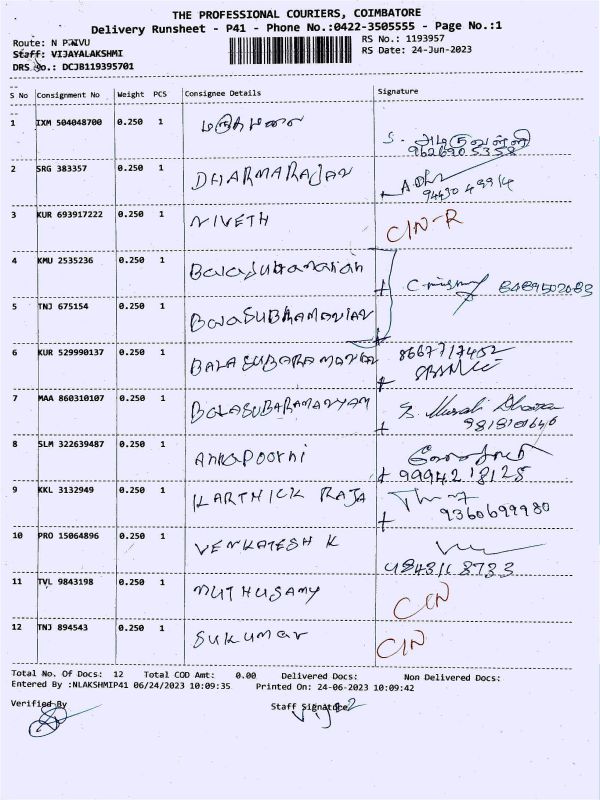 THE PROFESSIONAL COURIERS, COIMBATORE
Delivery Runsheet - P41 - Phone No.:0422-3505555 - Page No.:1
Route: N P
RS No.: 1193957
Staff: VIJAYALAKSHMI
RS Date: 24-Jun-2023
DRS No.: DCJB119395701
S No Consignment No Weight PCS Consignee Details Signature
1 IXM 504048700 0.250 1 மருதமலை
S.
9626905358
2 SRG 383357 0.250 1 DHARMARAJAN
94430 49914
3 KUR 693917222 0.250 1 NIVETH CIN-R
4 KMU 2535236 0.250 1 Balasubramaniah
8489502083
5 TNJ 675154 0.250 1 BalaSUBRAMANIAN
6 KUR 529990137 0.250 1 BALASUBARAMANIAN 8667717452
7 MAA 860310107 0.250 1 BALASUBARAMANYAM S. Murali Dharan
8 SLM 322639487 0.250 1 Annapoorni
9994218125
9 KKL 3132949 0.250 1 KARTHICK RAJA
9360699980
10 PRO 15064896 0.250 1 VENKATESH K
9843118733
11 TVL 9843198 0.250 1 MUTHUSAMY CIN
12 TNJ 894543 0.250 1 Sukumar CIN
Total No. Of Docs: 12 Total COD Amt: 0.00 Delivered Docs: Non Delivered Docs:
Entered By :NLAKSHMIP41 06/24/2023 10:09:35 Printed On: 24-06-2023 10:09:42
Verified By Staff Signature